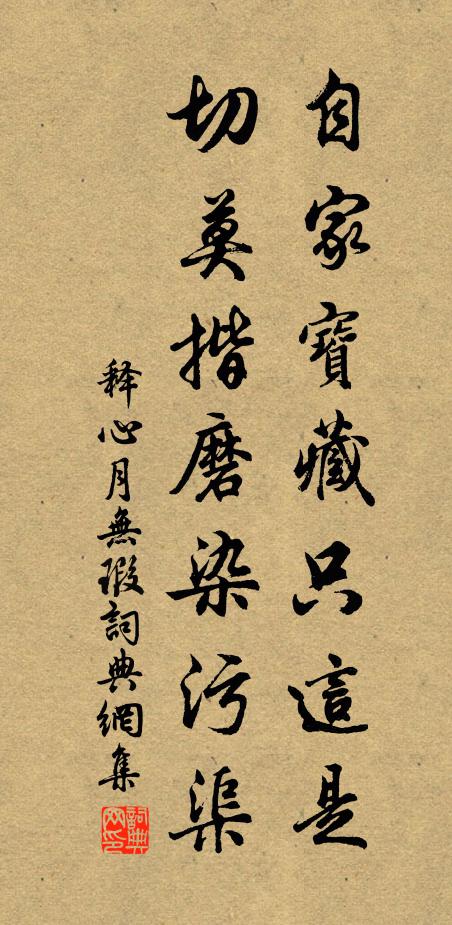 自家寶藏只這是
切莫揩磨染污渠
释心月無瑕詞典網集
詞典
网印